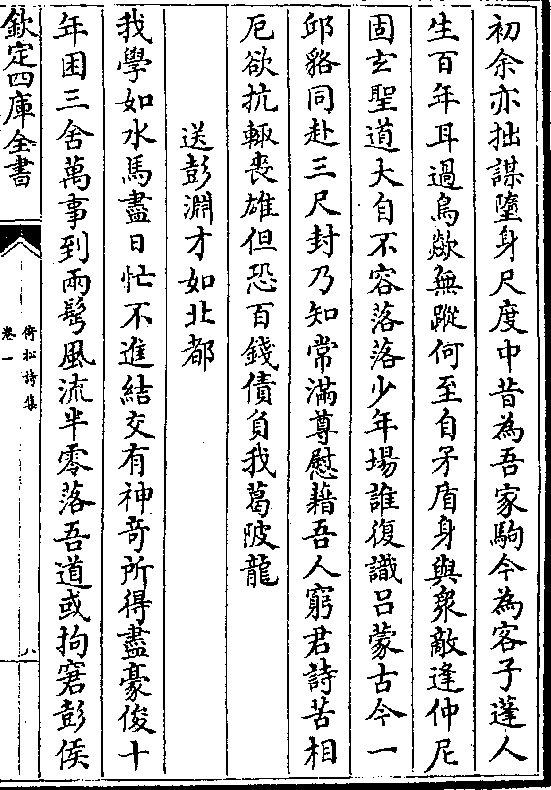 初余亦拙謀墮身尺度中昔為吾家駒今為客子蓬人
生百年耳過鳥歘無蹤何至自矛盾身與衆敵逢仲尼
固玄聖道大自不容落落少年場誰復識呂蒙古今一
邱貉同赴三尺封乃知常滿尊慰藉吾人窮君詩苦相
厄欲抗輙喪雄但恐百錢債負我葛陂龍
送彭淵才如北都
我學如水馬盡日忙不進結交有神奇所得盡豪俊十
年困三舍萬事到兩髩風流半零落吾道或拘窘彭侯
欽定四庫全書
倚松詩集
卷一
八